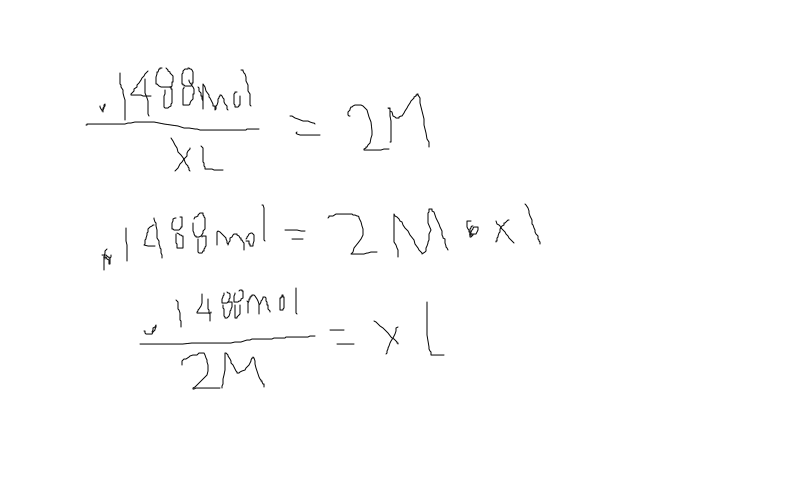 .1488mol
xL
= 2M
.1488mol = 2M • xl
.1488mol
2M
= x L